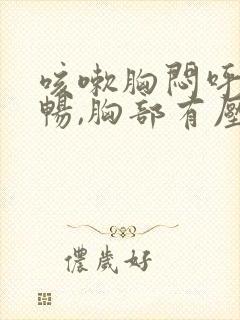 咳嗽胸悶呼
暢,胸部有壓
儂歲好